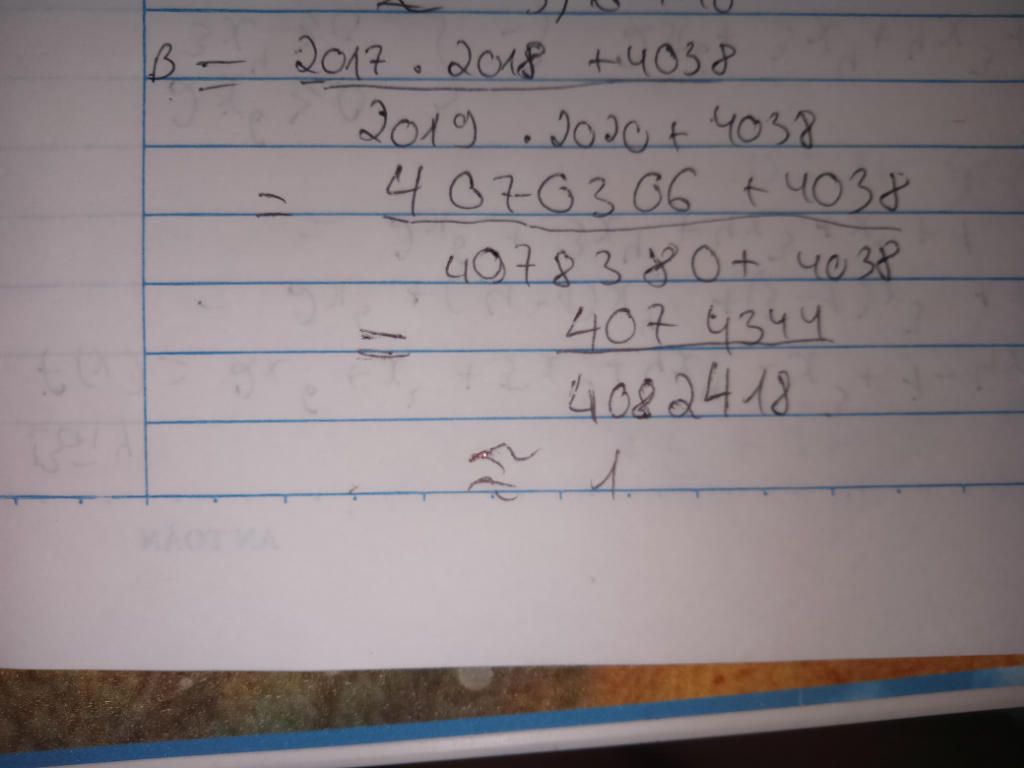 B = 2017 . 2018 + 4038
2019 . 2020 + 4038
= 4070306 + 4038
4078380 + 4038
= 4074344
4082418
≈ 1
AN TOÀN